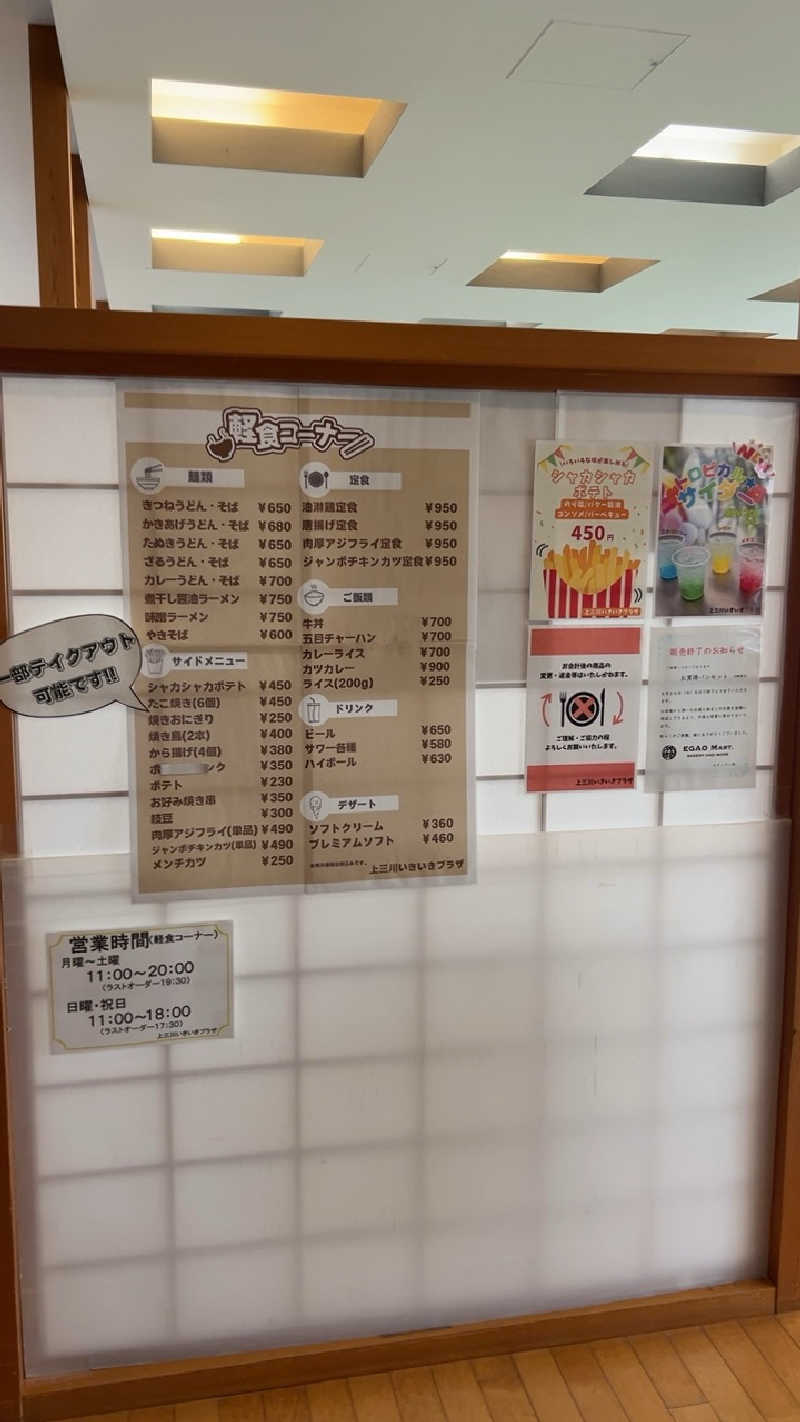 軽食コーナー
麺類
きつねうどん・そば ¥650
かきあげうどん・そば ¥680
たぬきうどん・そば ¥650
ざるうどん・そば ¥650
カレーうどん・そば ¥700
煮干し醤油ラーメン ¥750
味噌ラーメン ¥750
やきそば ¥600
サイドメニュー
シャカシャカポテト ¥450
たこ焼き(6個) ¥450
焼きおにぎり ¥250
焼き鳥(2本) ¥400
から揚げ(4個) ¥380
ンク ¥350
ポテト ¥230
お好み焼き串 ¥350
枝豆 ¥300
肉厚アジフライ(単品) ¥490
ジャンボチキンカツ(単品) ¥490
メンチカツ ¥250
定食
油淋鶏定食 ¥950
唐揚げ定食 ¥950
肉厚アジフライ定食 ¥950
ジャンボチキンカツ定食 ¥950
ご飯類
牛丼 ¥700
五目チャーハン ¥700
カレーライス ¥700
カツカレー ¥900
ライス(200g) ¥250
ドリンク
ビール ¥650
サワー各種 ¥580
ハイボール ¥630
デザート
ソフトクリーム ¥360
プレミアムソフト ¥460
上三川いきいきプラザ
一部テイクアウト
可能です!!
シャカシャカ
ポテト
のり塩/バター醤油
コンソメ/バーベキュー
450円
上三川いきいきプラザ
トロピカル
サイダー
上三川いきいきプラザ
お会計後の商品の
変更・返金等はいたしかねます。
ご理解・ご協力の程
よろしくお願いいたします。
上三川いきいきプラザ
販売終了のお知らせ
EGAO MART.
営業時間(軽食コーナー)
月曜~土曜
11:00~20:00
(ラストオーダー19:30)
日曜・祝日
11:00~18:00
(ラストオーダー17:30)
上三川いきいきプラザ